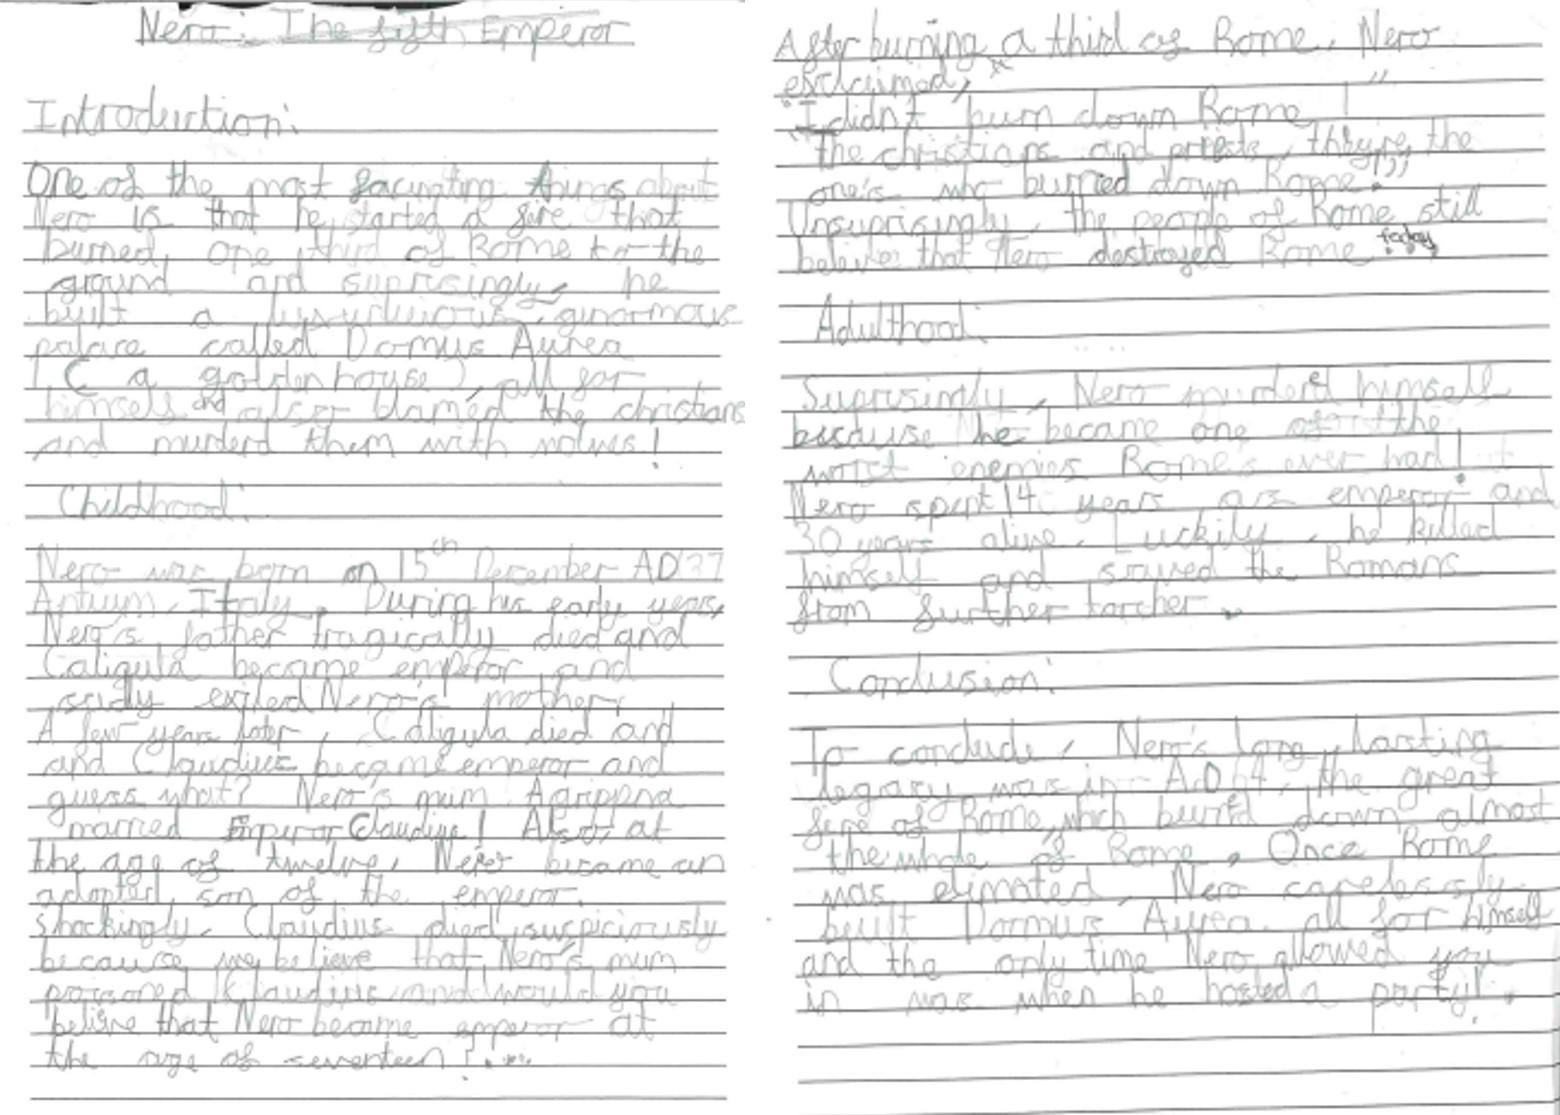 Nero: The fifth Emperor
Introduction:
One of the most facinating things about
Nero is that he started a fire that
burned one third of Rome to the
ground and suprisingly, he
built a ginormous
palace called Domus Aurea
( a golden house), all for
himself and also blamed the christians
and murderd them with wolves!
Childhood:
Nero was born on 15th December AD 37
Antium, Italy. During his early years,
Nero's father tragically died and
Caligula became emperor and
sadly exiled Nero's mother.
A few years later, Caligula died and
and Claudius became emperor and
guess what? Nero's mum Agrippna
married Emperor Claudius! Also, at
the age of twelve, Nero became an
adopted son of the emperor.
Shockingly, Claudius died suspiciously
because we believe that Nero's mum
Claudius and would you
belive that Nero became emperor at
the age of seventeen!...
After burning a third of Rome, Nero
exclaimed,
"I didn't burn down Rome!"
"The christians and priests, the
one's who burned down Rome."
Unsuprisingly, the people of Rome still
that Nero destroyed Rome today.
Adulthood:
Suprisingly, Nero murdered himself
because he became one of the
worst enemies Rome's ever had!
Nero spent 14 years as emperor and
30 years alive. Luckily, he killed
himself and saved the Romans
from further torcher.
Conclusion:
To conclude, Nero's long lasting
legacy was in AD 64, the great
fire of Rome, which down almost
the whole of Rome. Once Rome
was elimated, Nero carelessly
built Domus Aurea all for himself
and the only time Nero allowed you
in was when he hosted a party!.